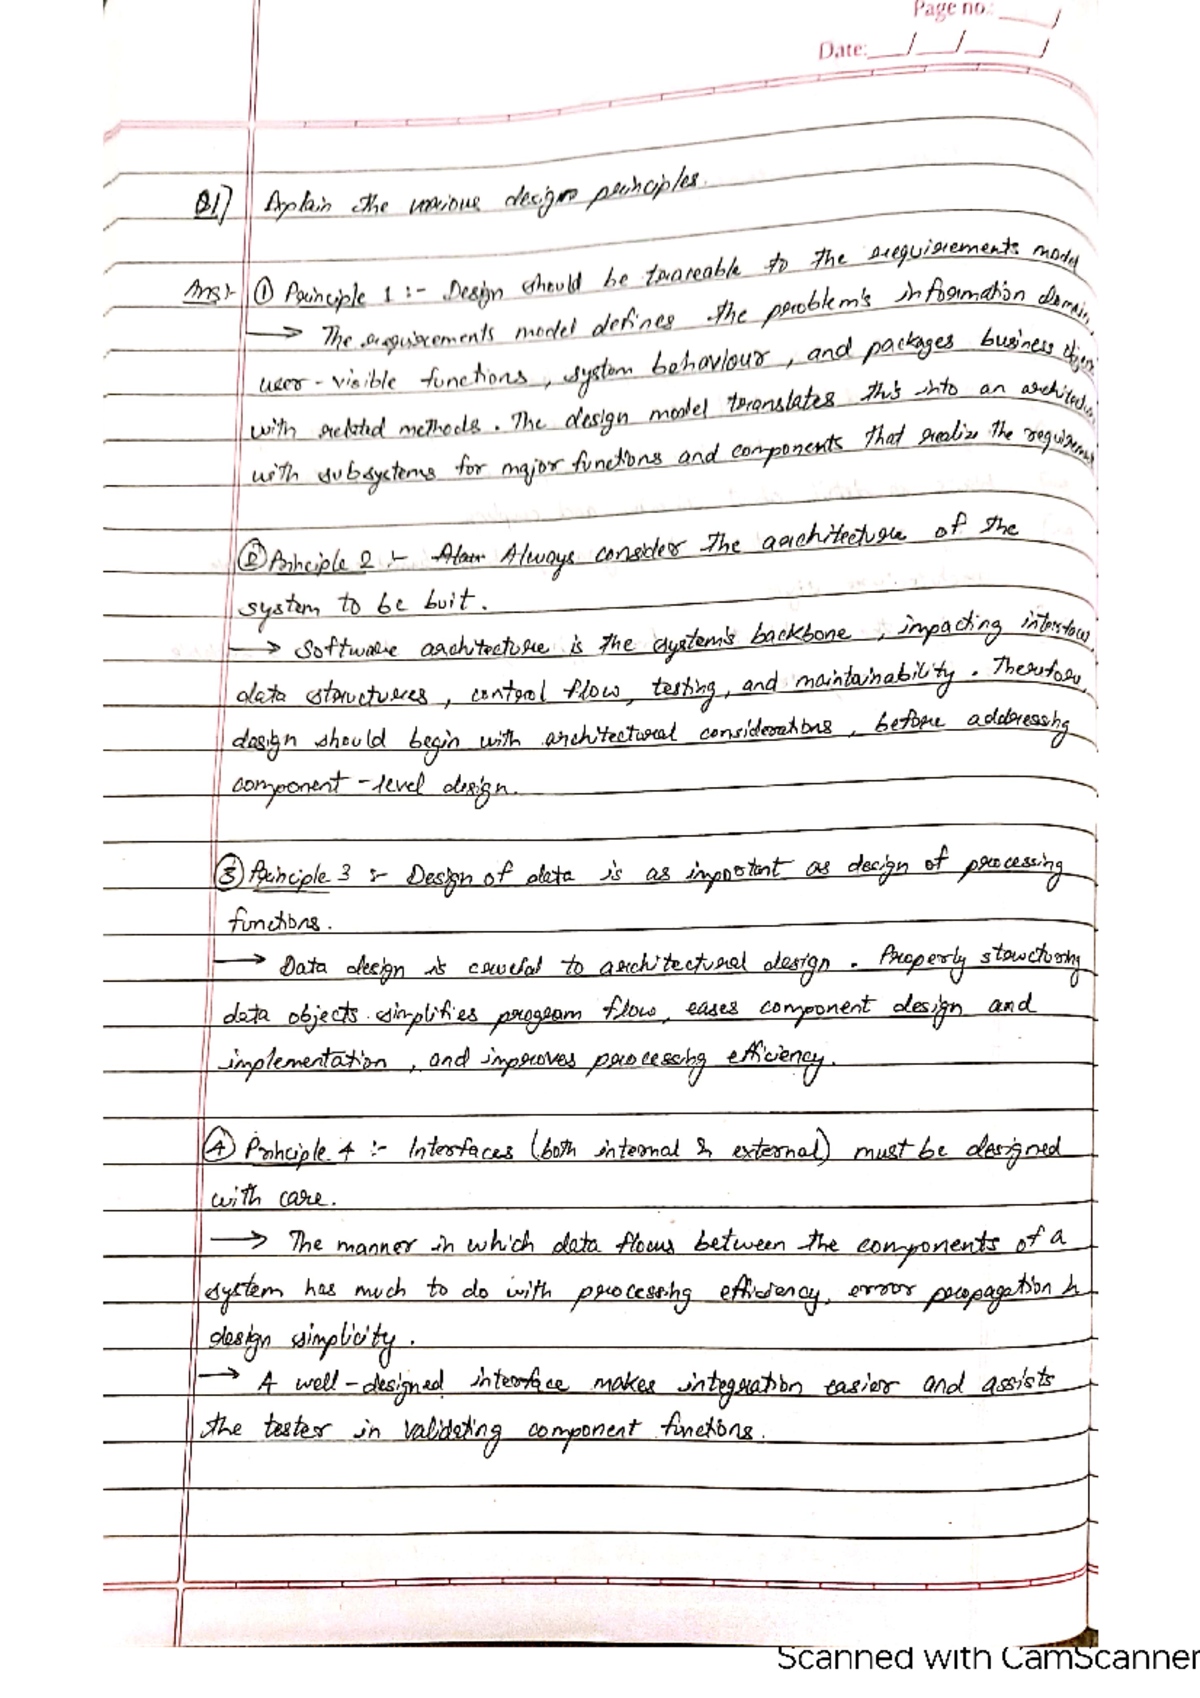 Page no.:
Date:
Q1] Explain the various design principles.
Ans:- ① Principle 1 :- Design should be traceable to the requirements model
→ The requirements model defines the problem's information domain,
user-visible functions, system behaviour, and packages business objects
with related methods. The design model translates this into an architecture
with subsystems for major functions and components that realize the requirements
② Principle 2 :- Always consider the architecture of the
system to be buit.
→ Software architecture is the system's backbone, impacting interfaces,
data structures, control flow, testing, and maintainability. Therefore,
design should begin with architectural considerations, before addressing
component-level design.
③ Principle 3 :- Design of data is as important as design of processing
functions.
→ Data design is crucial to architectural design. Properly structuring
data objects simplifies program flow, eases component design and
implementation, and improves processing efficiency.
④ Principle 4 :- Interfaces (both internal & external) must be designed
with care.
→ The manner in which data flows between the components of a
system has much to do with processing efficiency, error propagation &
design simplicity.
→ A well-designed interface makes integration easier and assists
the tester in validating component functions.
Scanned with CamScanner